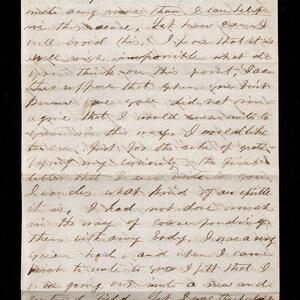 write any more than I can help
in this sense, Yet how can I
well avoid this. I know that it is
well nigh impossible what do
you think on this point, I am
thus suppose that when you first
knew you you did not im-
agine that I would ever write to
you in this way. I would like
to see, just for the sake of grat-
ifying my curiosity the first
letter that I ever wrote to you
I wonder what kind of an epistle
it is, I had not done much
in the way of corresponding
then with any body, I was a very
green hand, and when I came
first to write to you I felt that I
was going out into a new and
field, Yet I was